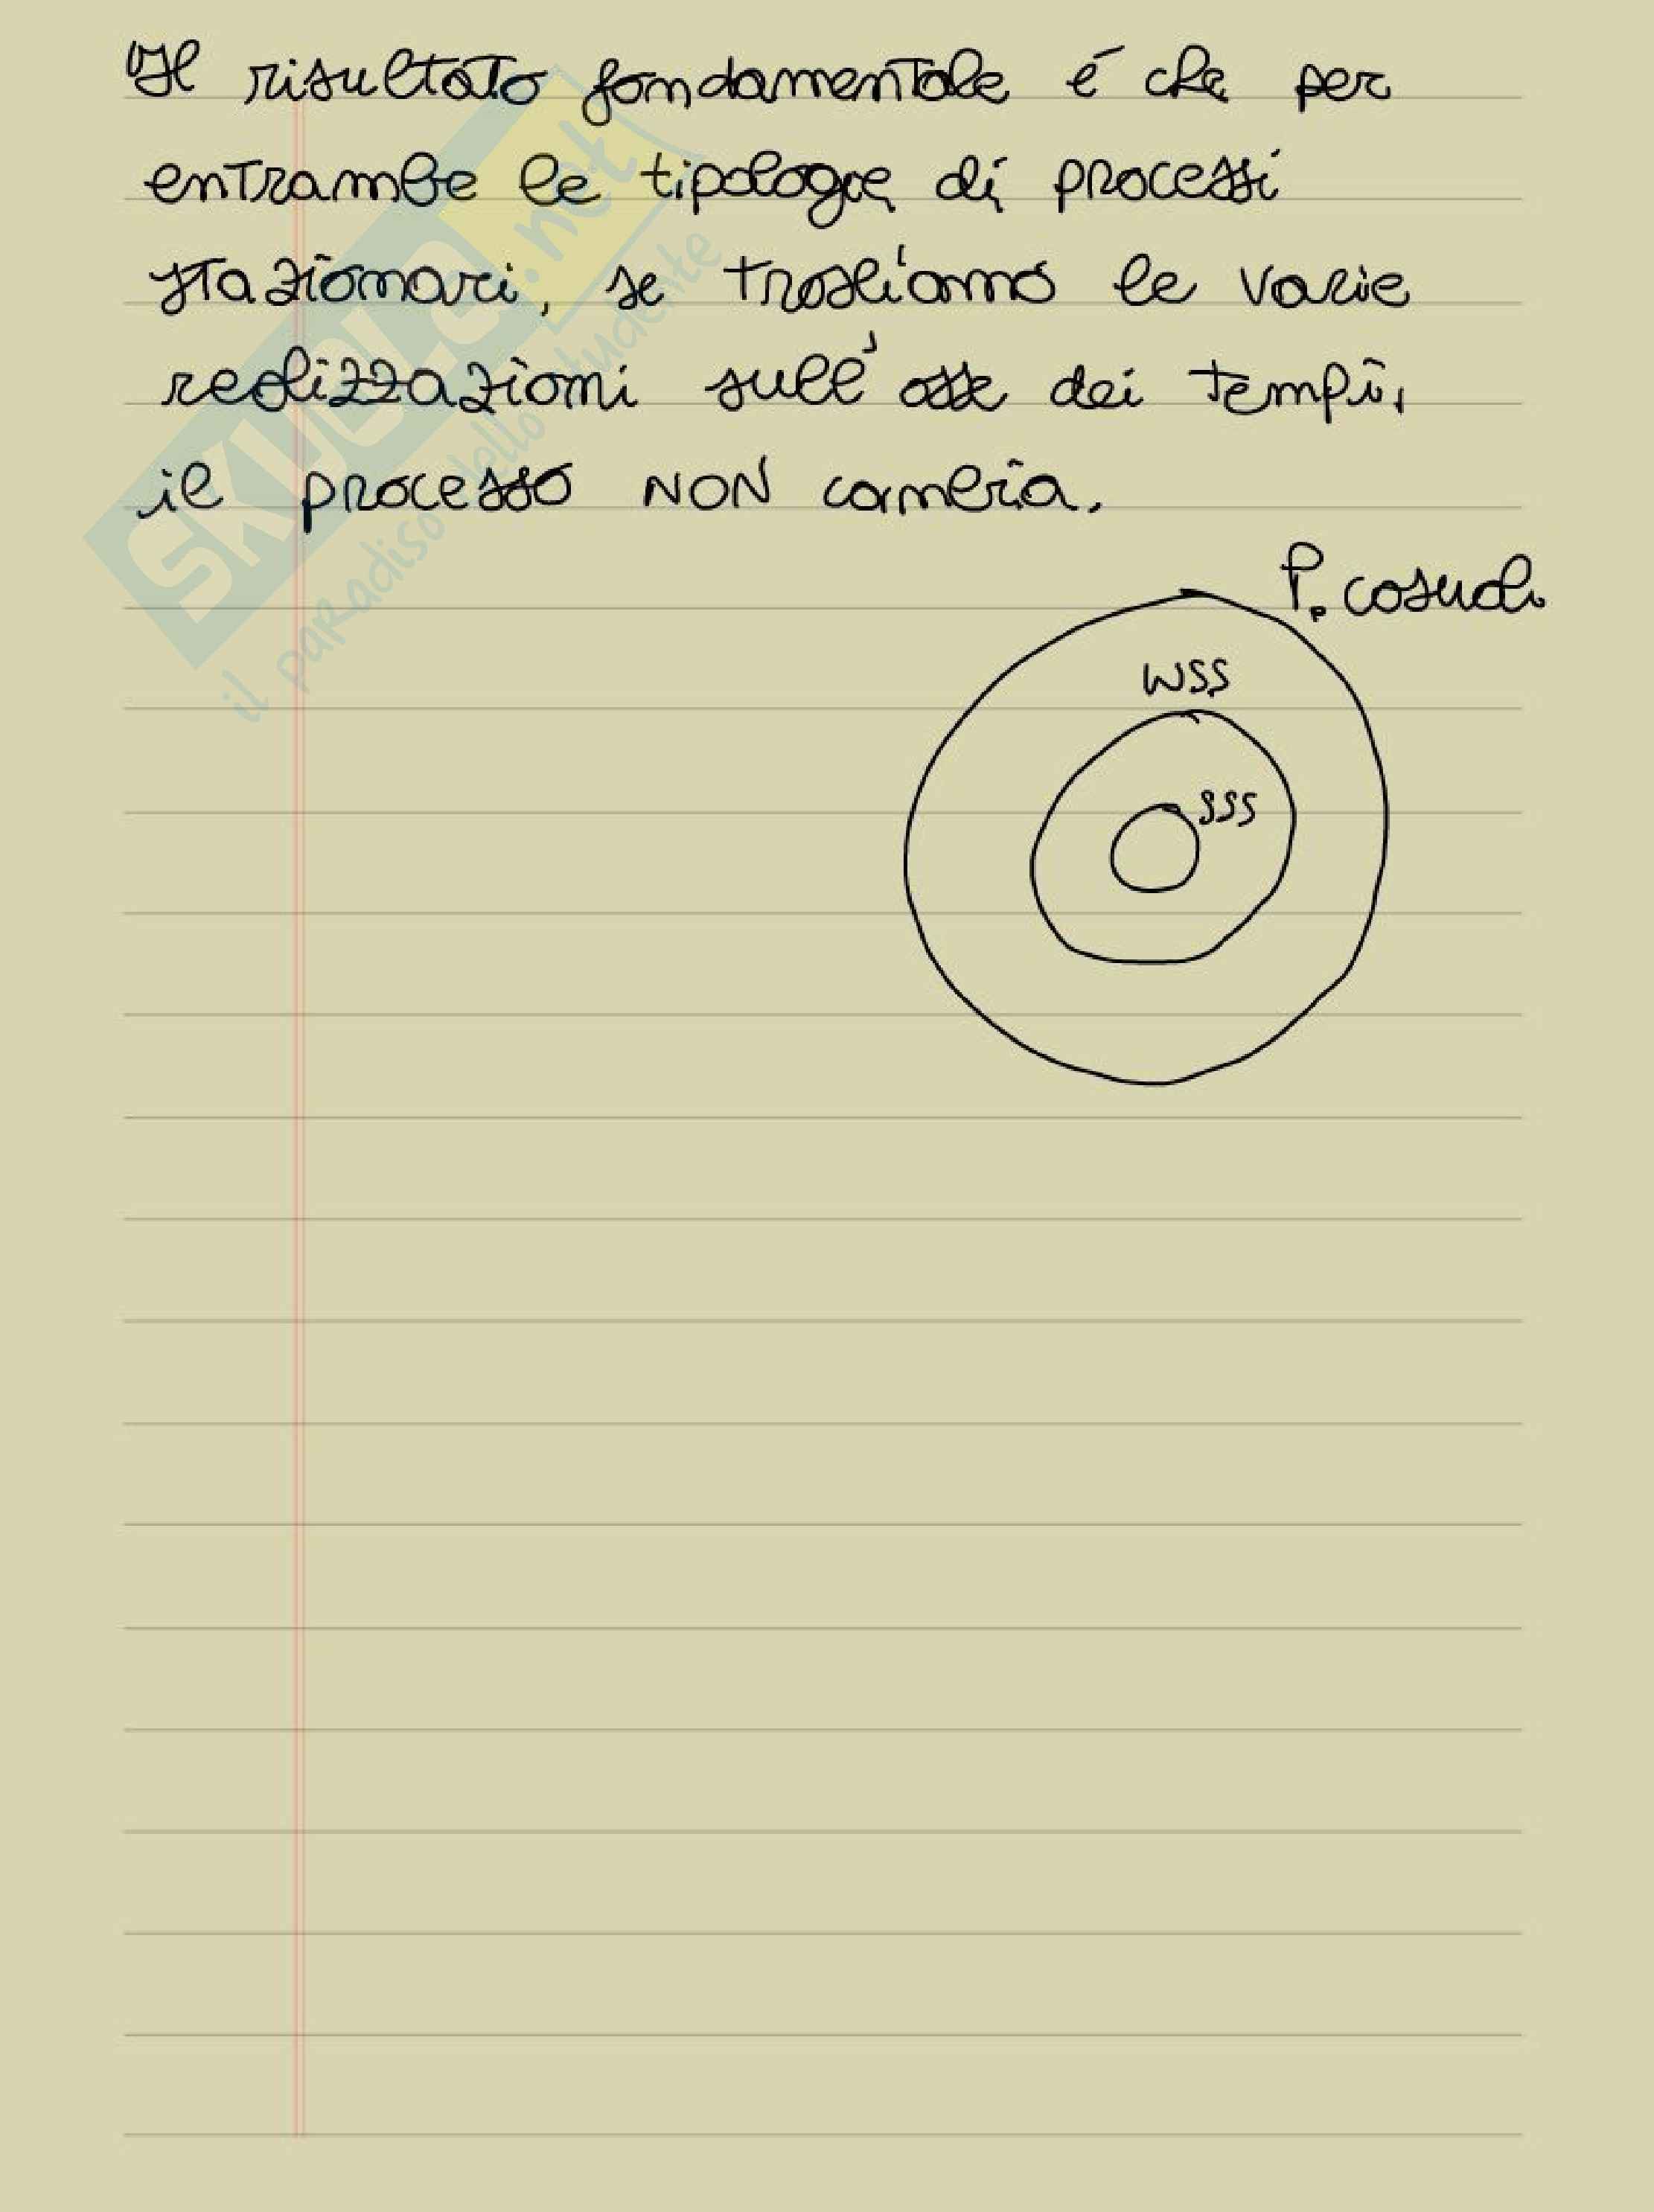 Il risultato fondamentale é che per
entrambe le tipologie di processi
stazionari, se trasliamo le varie
realizzazioni sull'asse dei tempi,
il processo NON cambia.
P. casuali
WSS
SSS
SKUOLA.net
il paradiso dello studente